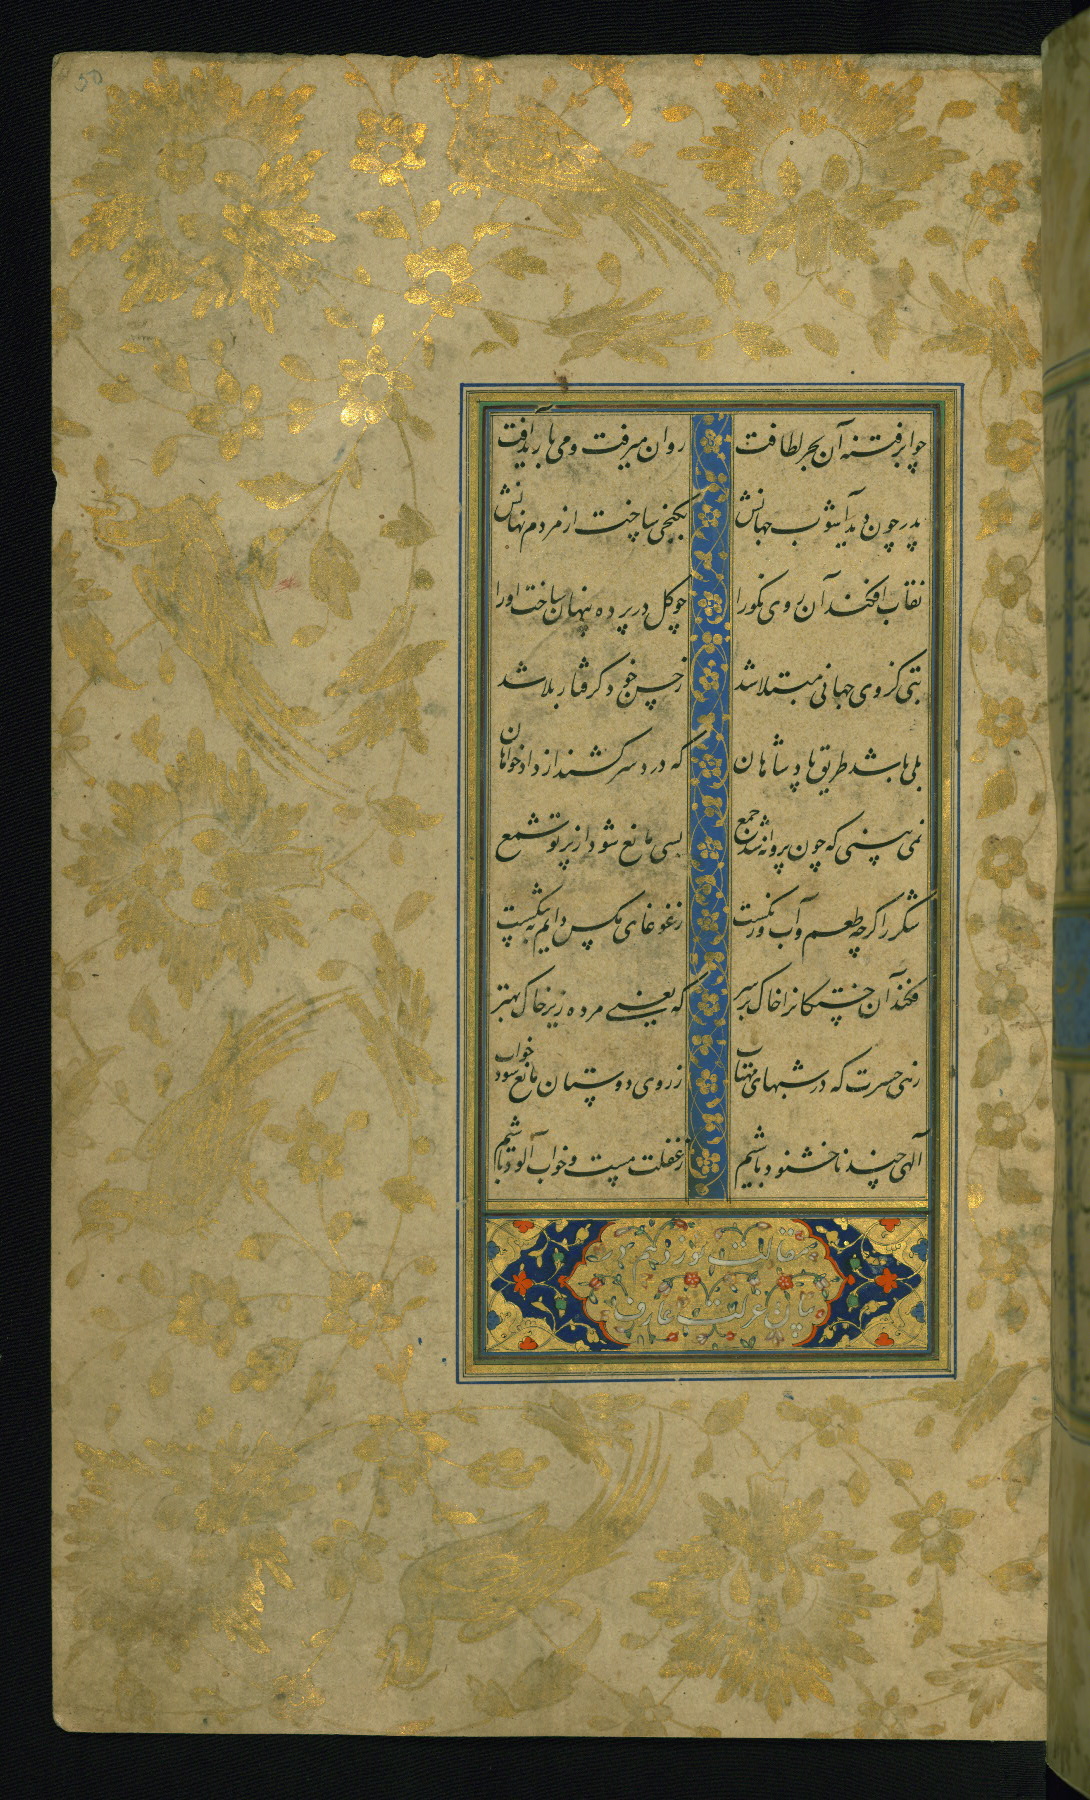 50
چو ابر فتنه آن بحر لطافت روان میرفت و می بارید آفت
پدر چون دید آشوب جهانش بکنجی ساخت از مردم نهانش
نقاب افکند آن روی نکو را چو گل در پرده پنهان ساخت او را
بتی کز وی جهانی مبتلا شد ز حسن خود گرفتار بلا شد
بلی باشد طریق پادشاهان که در دسر کشند از دادخواهان
نمی بینی که چون پروانه شد جمع بسی مانع شود از پرتو شمع
شکر را گرچه طعم و آب و رنگست ز غوغای مگس دایم به
فکند آن خستگانرا خاک بر سر که یعنی مرده زیر خاک بهتر
زهی حسرت که در شبهای مهتاب ز روی دوستان مانع شود خواب
الهی چند ناخشنود باشیم ز غفلت مست و خواب آلود باشیم
مقالت نوزدهم در
عزلت عارف